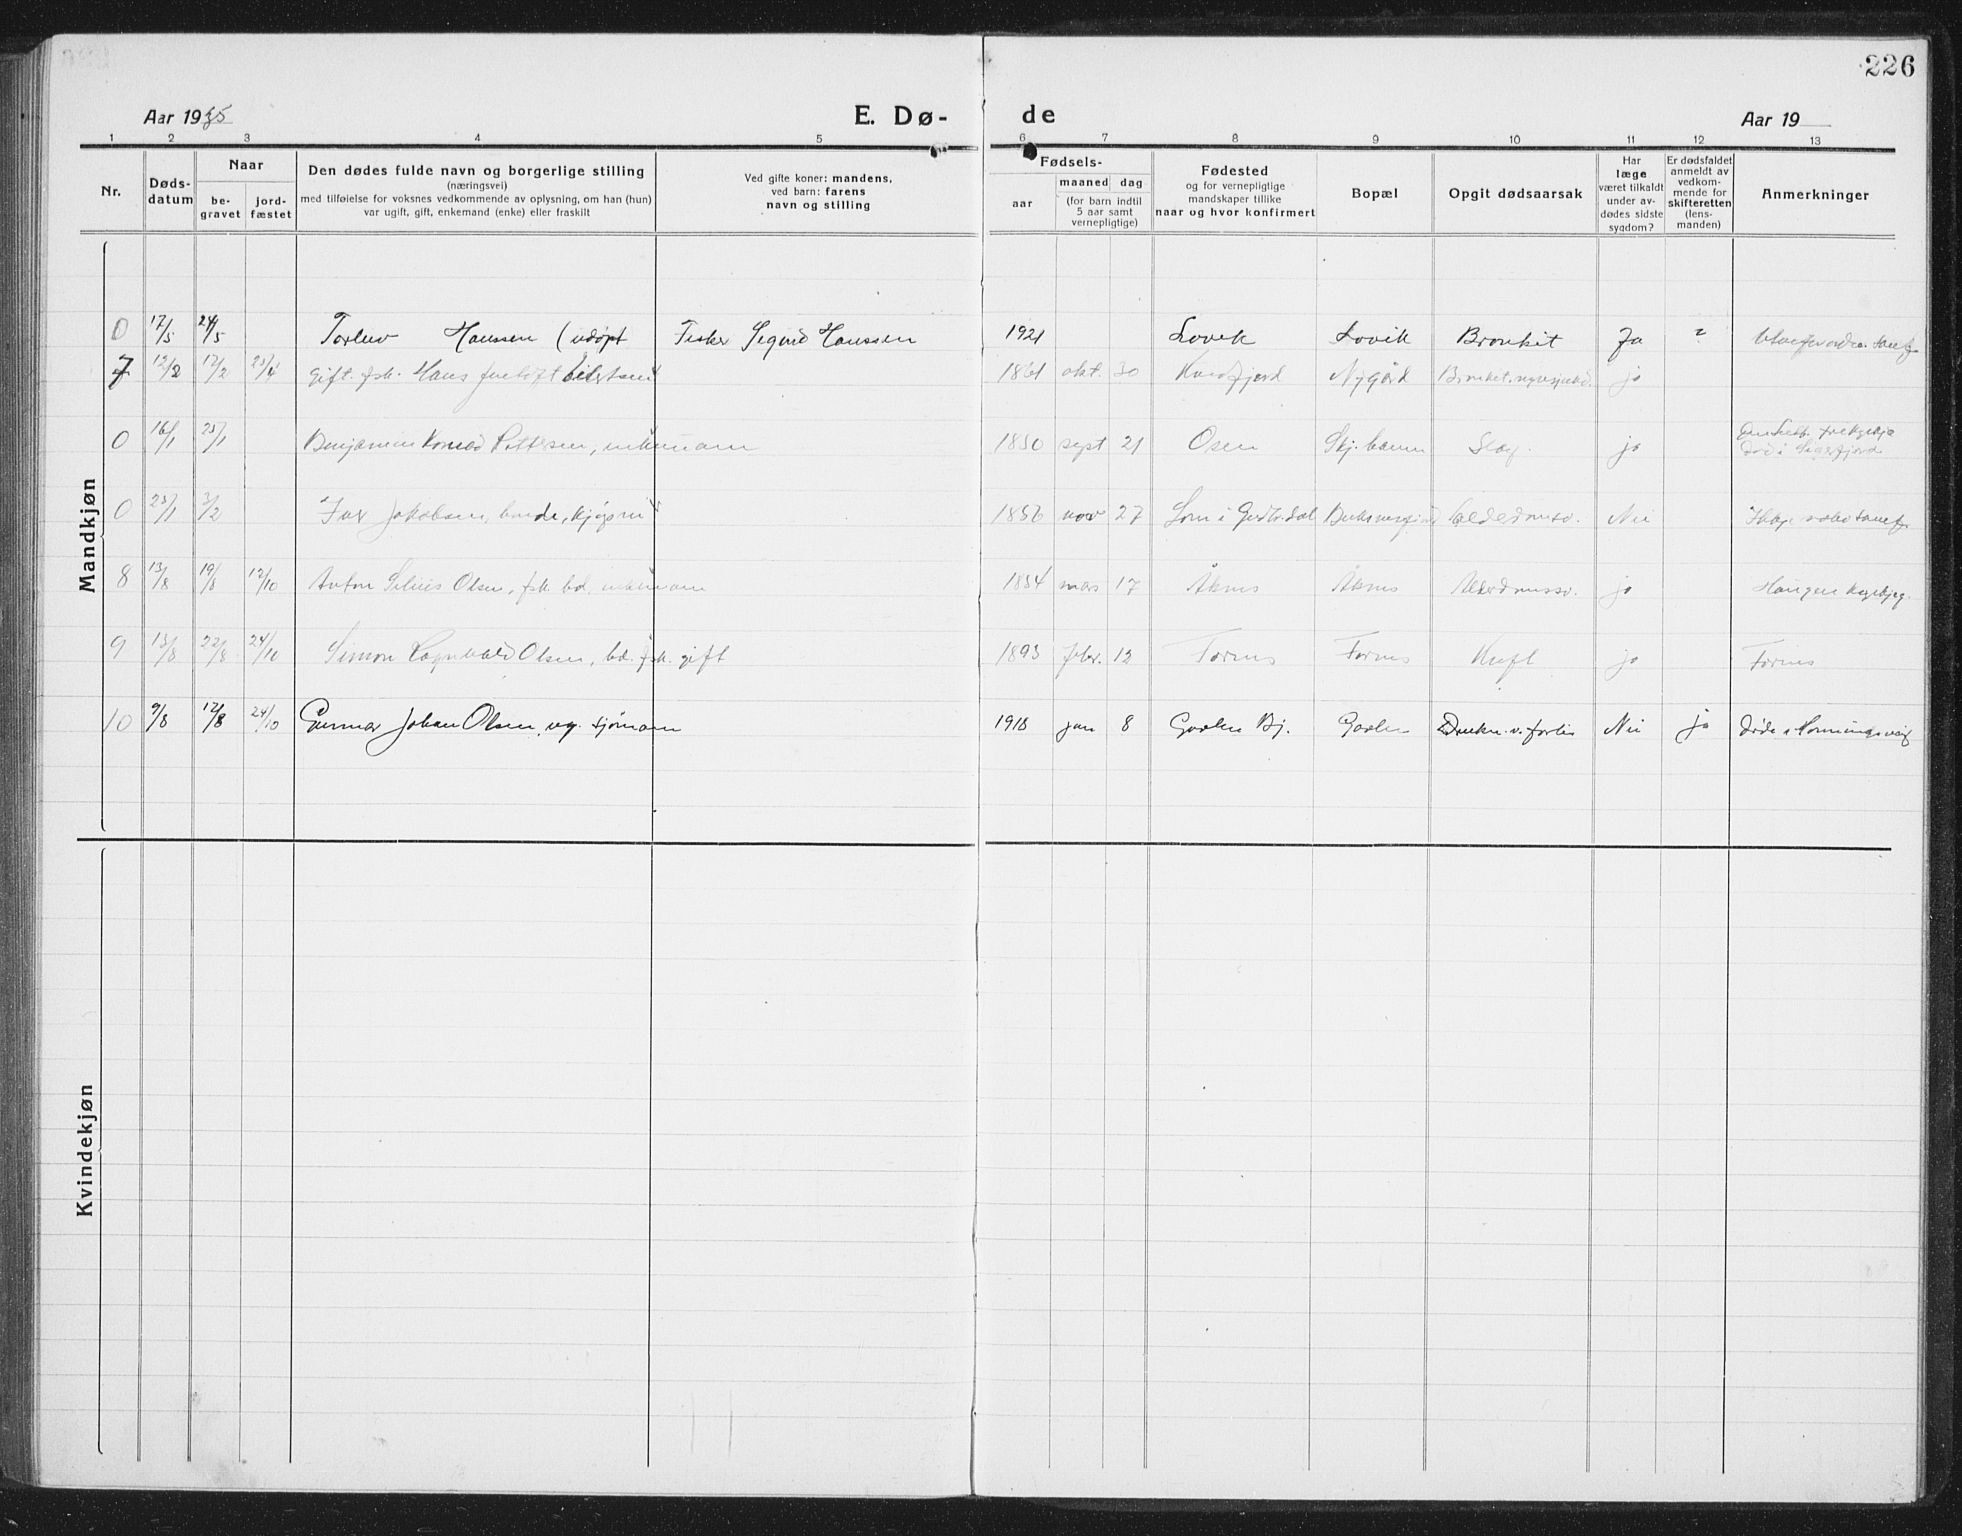 226
Aar 1935 E. Dø- de Aar 19
1 2 3 4 5 6 7 8 9 10 11 12 13
Nr.
Døds-
datum
Naar
be-
gravet
jord-
fæstet
Den dødes fulde navn og borgerlige stilling
(næringsvei)
med tilføielse for voksnes vedkommende av oplysning, om han (hun)
var ugift, gift, enkemand (enke) eller fraskilt
Ved gifte koner: mandens,
ved barn: farens
navn og stilling
Fødsels-
aar
maaned dag
(for barn indtil
5 aar samt
vernepligtige)
Fødested
og for vernepligtige
mandskaper tillike
naar og hvor konfirmert
Bopæl
Opgit dødsaarsak
Har
læge
været tilkaldt
under av-
dødes sidste
sygdom?
Er dødsfaldet
anmeldt av
vedkom-
mende for
skifteretten
(lens-
manden)
Anmerkninger
Mandkjøn
0 17/5 24/5 Hanssen (udøpt Fisker Sigurd Hanssen 1921 Lovik Lovik Bronkit Ja ?
7 12/2 17/2 25/4 gift. fsk. Hans 1861 okt. 30 Kvæfjord Nygård ja
0 16/1 25/1 Benjamin Konrad Pettersen, enkemann 1850 sept 21 Osen Slag. ja
død i Sigerfjord
0 25/1 3/2 Jakobsen, 1856 nov 27 Lom i Gudbr.dal Alderdomssv. Nei
8 13/8 19/8 12/10 Anton Olsen, fsk. bd. enkemann 1854 mars 17 Åknes Åknes Alderdomssv. ja Haugen
9 13/8 22/8 24/10 Simon Ragnvald Olsen, bd. fsk. gift 1893 febr. 12 Fornes Fornes Kreft ja Fornes
10 9/8 17/8 24/10 Gunnar Johan Olsen, ug. sjømann 1918 jan 8 Drukn. v. forlis Nei ja døde i Honningsvåg
Kvindekjøn